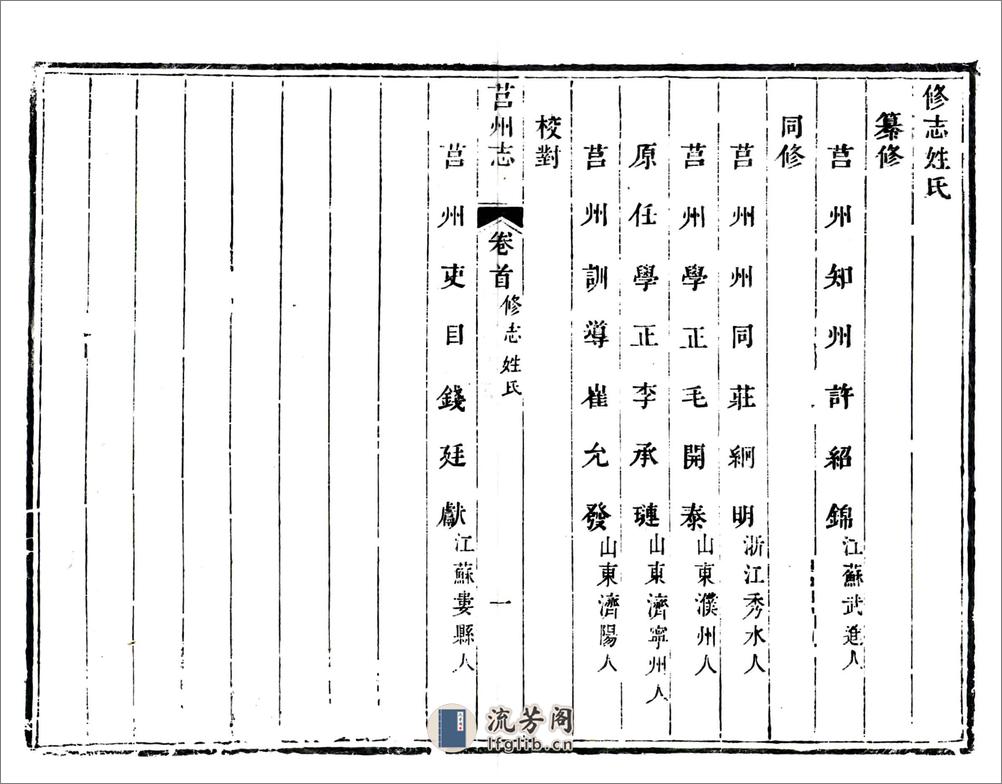 修志姓氏
纂修
莒州知州許紹錦江蘇武進人
同修
莒州州同莊絅明浙江秀水人
莒州學正毛開泰山東濮州人
原任學正李承璉山東濟寧州人
莒州訓導崔允發山東濟陽人
校對
莒州志 卷首 修志姓氏 一
莒州吏目錢廷獻江蘇婁縣人
流芳阁
lfglib.cn